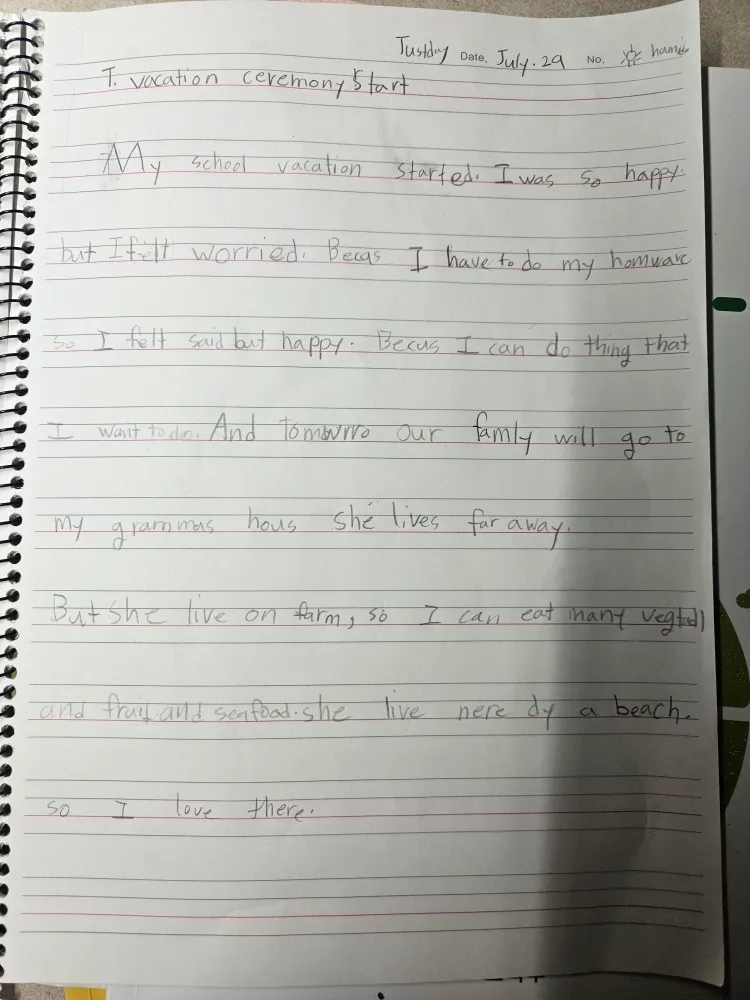 Tusday Date. July. 29 No.
T. vacation ceremony start
My school vacation started. I was so happy.
but I felt worried. Becas I have to do my homwarc
so I felt said but happy. Becus I can do thing that
I want to do. And tomwrro our famly will go to
my grammas hous she lives far away.
But she live on farm, so I can eat many
and fruit. and seafood. she live nere dy a beach.
so I love there.